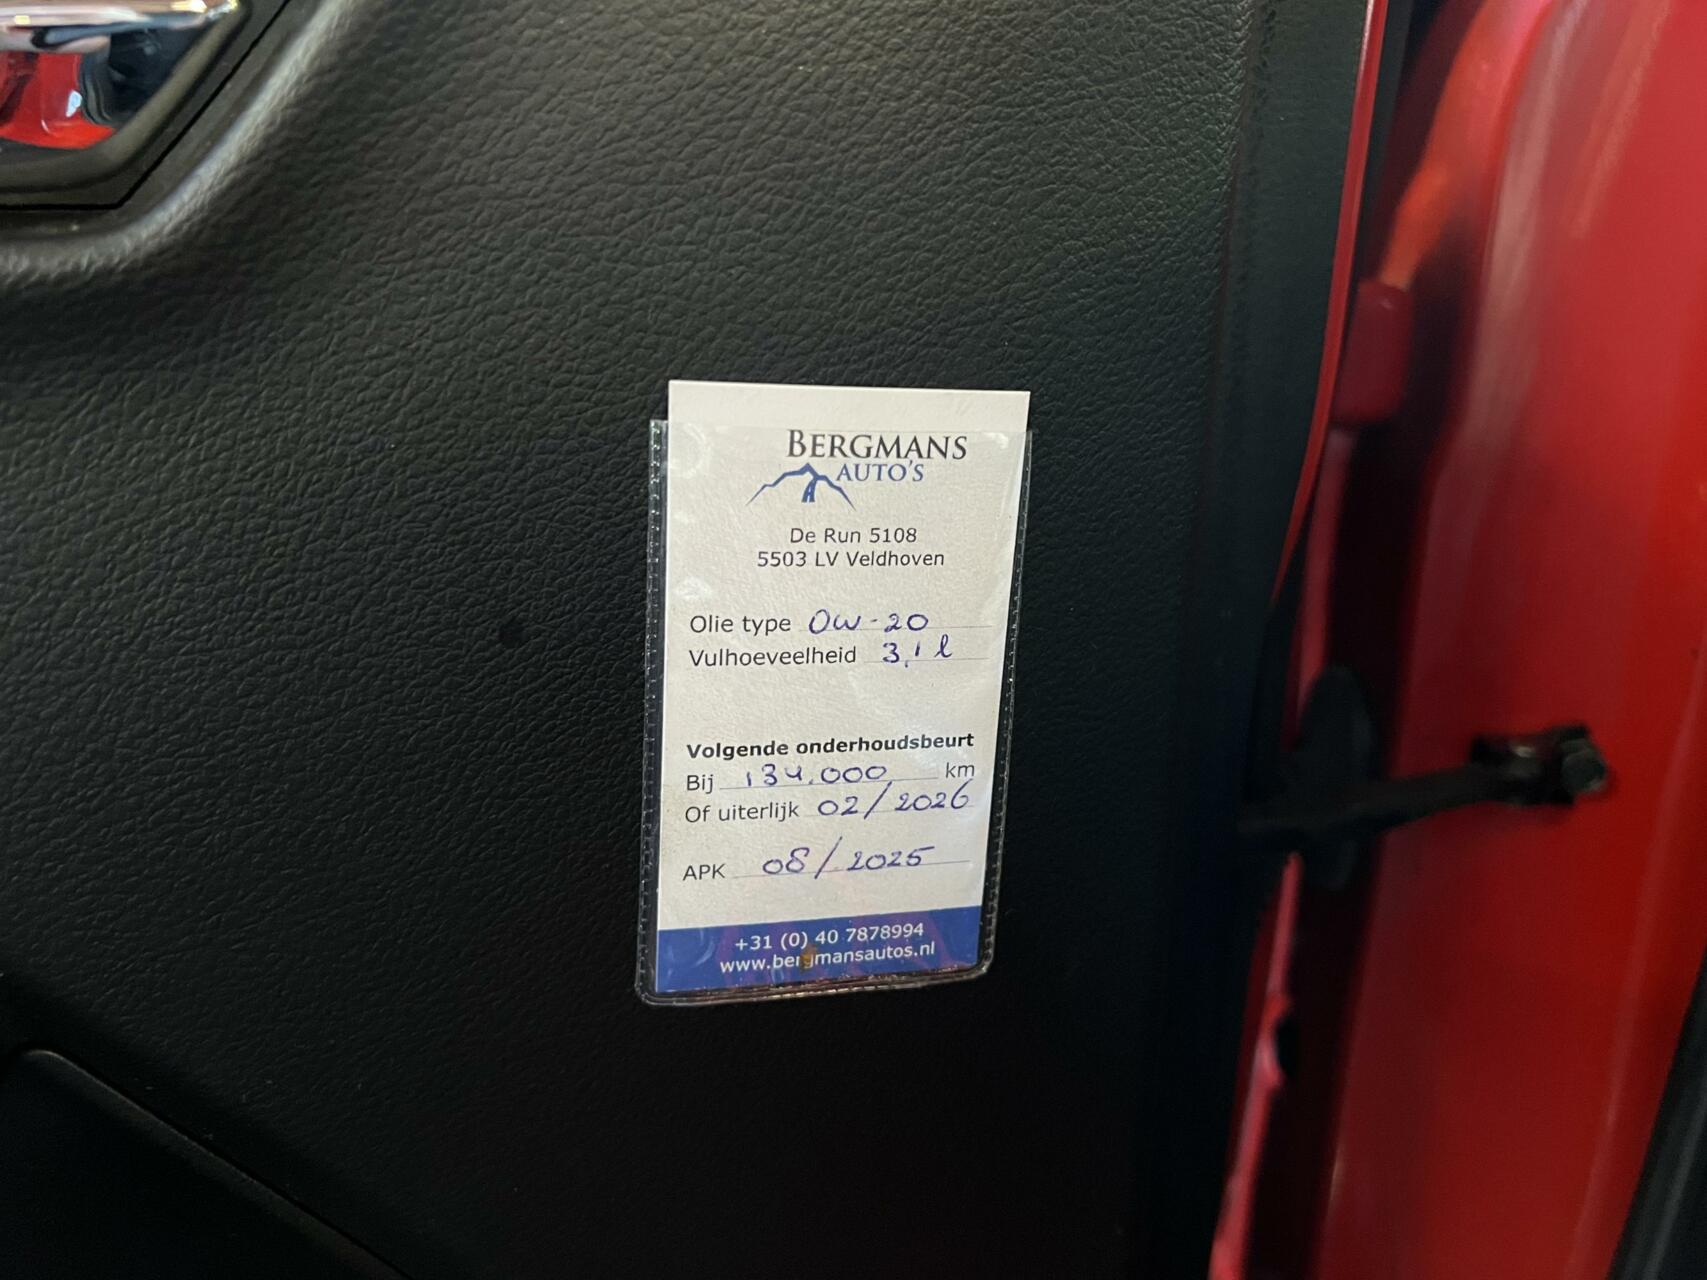 BERGMANS
AUTO'S
De Run 5108
5503 LV Veldhoven
Olie type 0W-20
Vulhoeveelheid 3,1 l
Volgende onderhoudsbeurt
Bij 134.000 km
Of uiterlijk 02/2026
APK 08/2025
+31 (0) 40 7878994
www.bergmansautos.nl